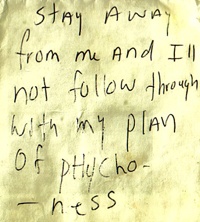 STAY AWAY
from me AND I'll
not follow through
with my plan
Of pHycho-
- ness